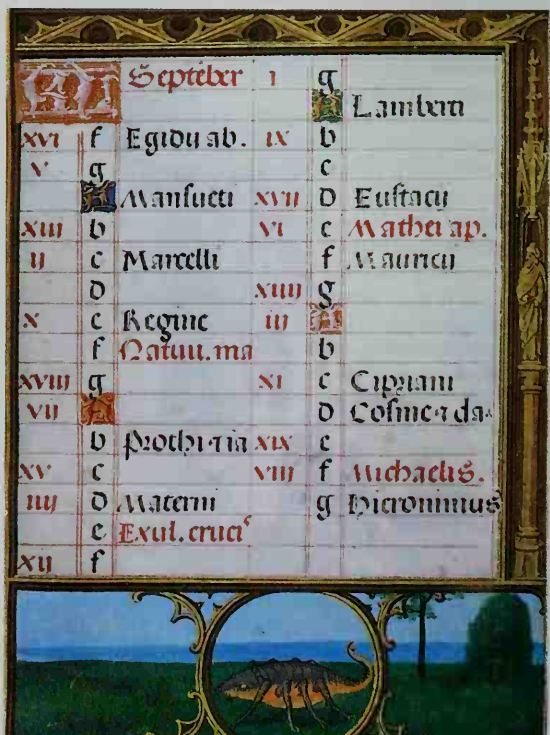 KL Septēber
xvi f Egidij ab.
v g
A Mansueti
xiij b
ij c Marcelli
D
x e Regine
f Natiui. ma
xviij g
vij A
b Prothi ⁊ ia
xv c
iiij D Materni
e Exul. cruci
xij f
i g
A Lamberti
ix b
c
xvij D Eustacij
vi e Mathei ap.
f Mauricij
xiiij g
iij A
b
xi c Cipriani
D Cosme ⁊ da
xix e
viij f Michaelis.
g Hieronimus